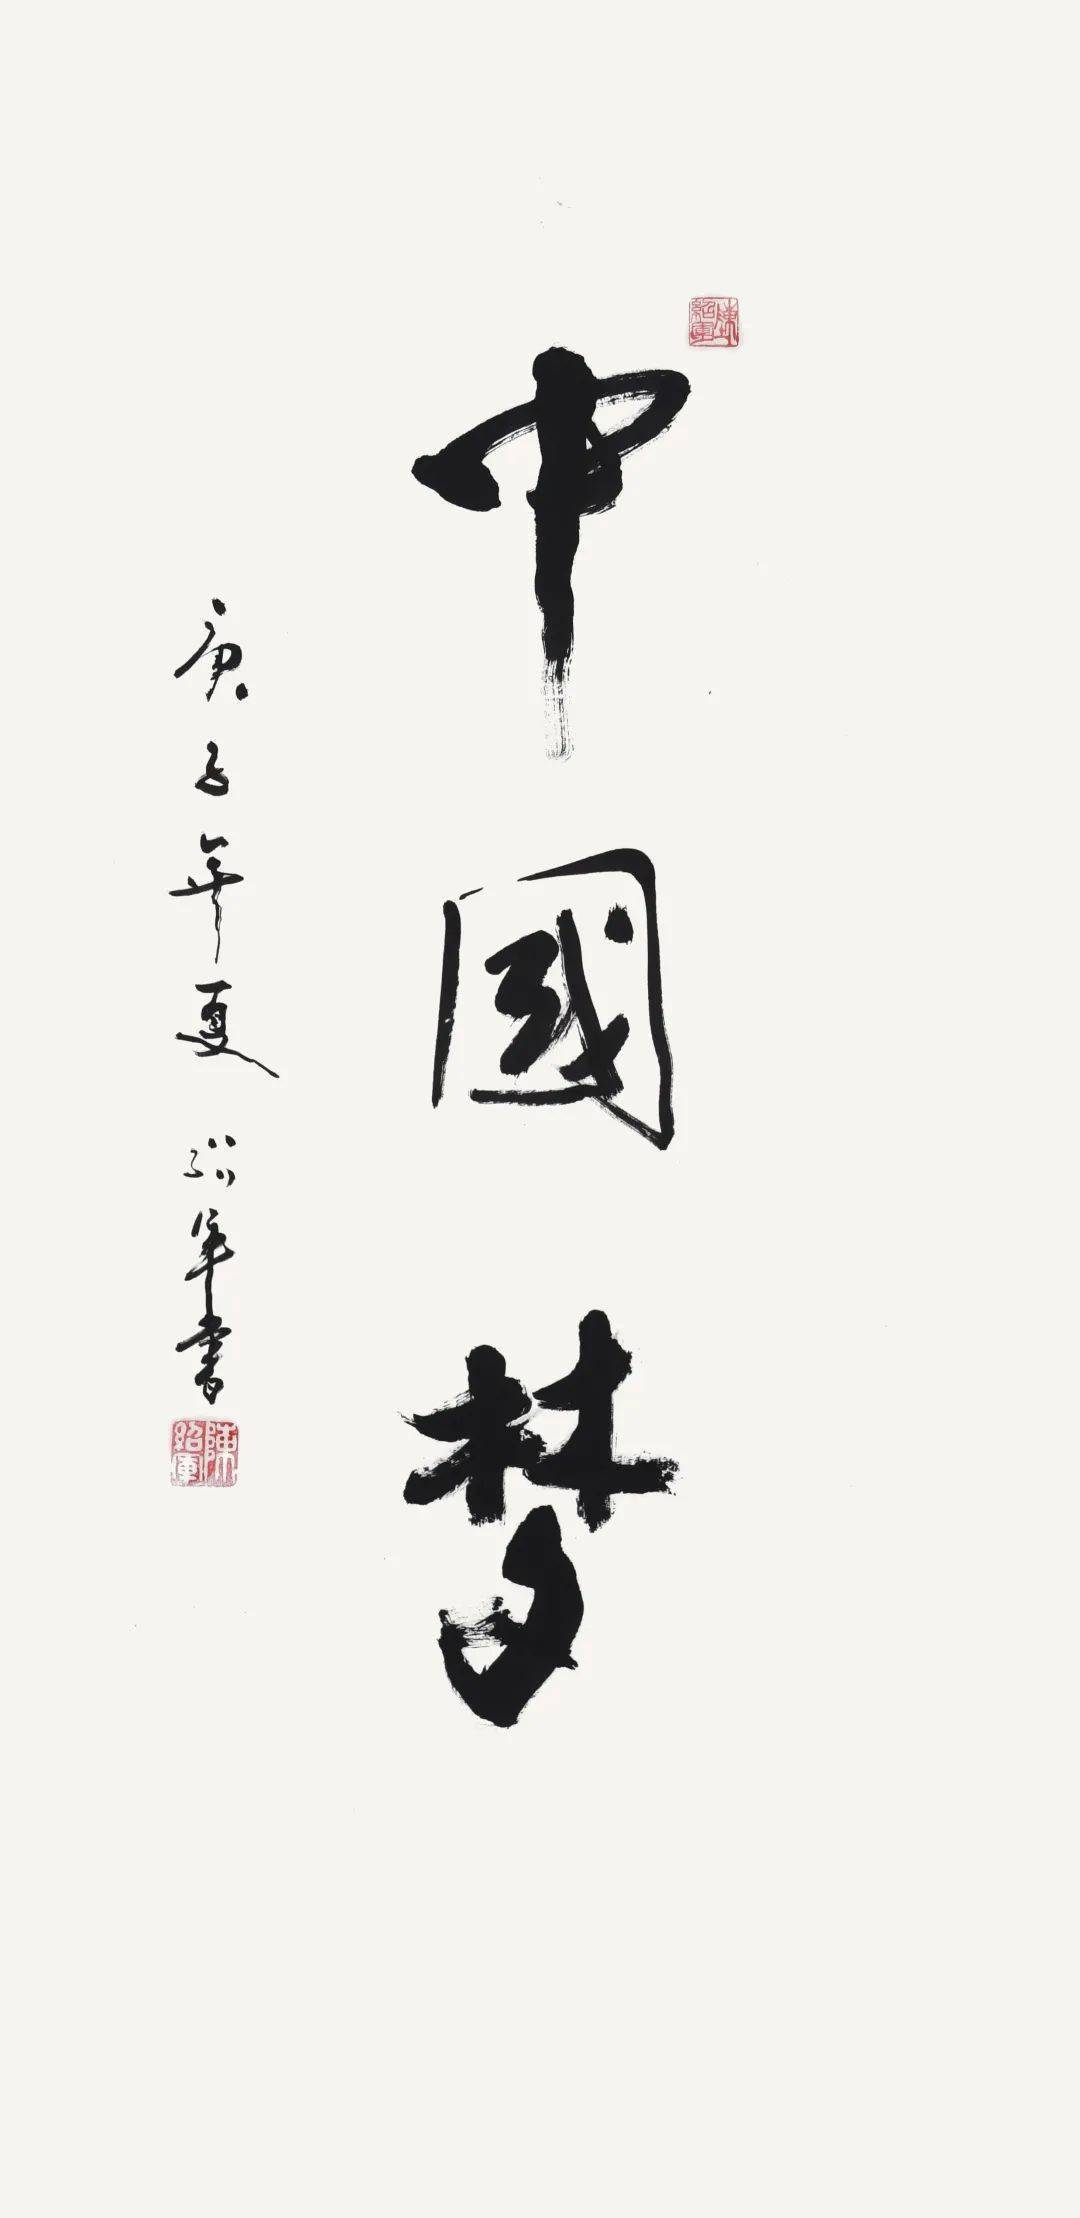 中國梦
庚子年夏 紹军書
陳紹軍
陳紹軍